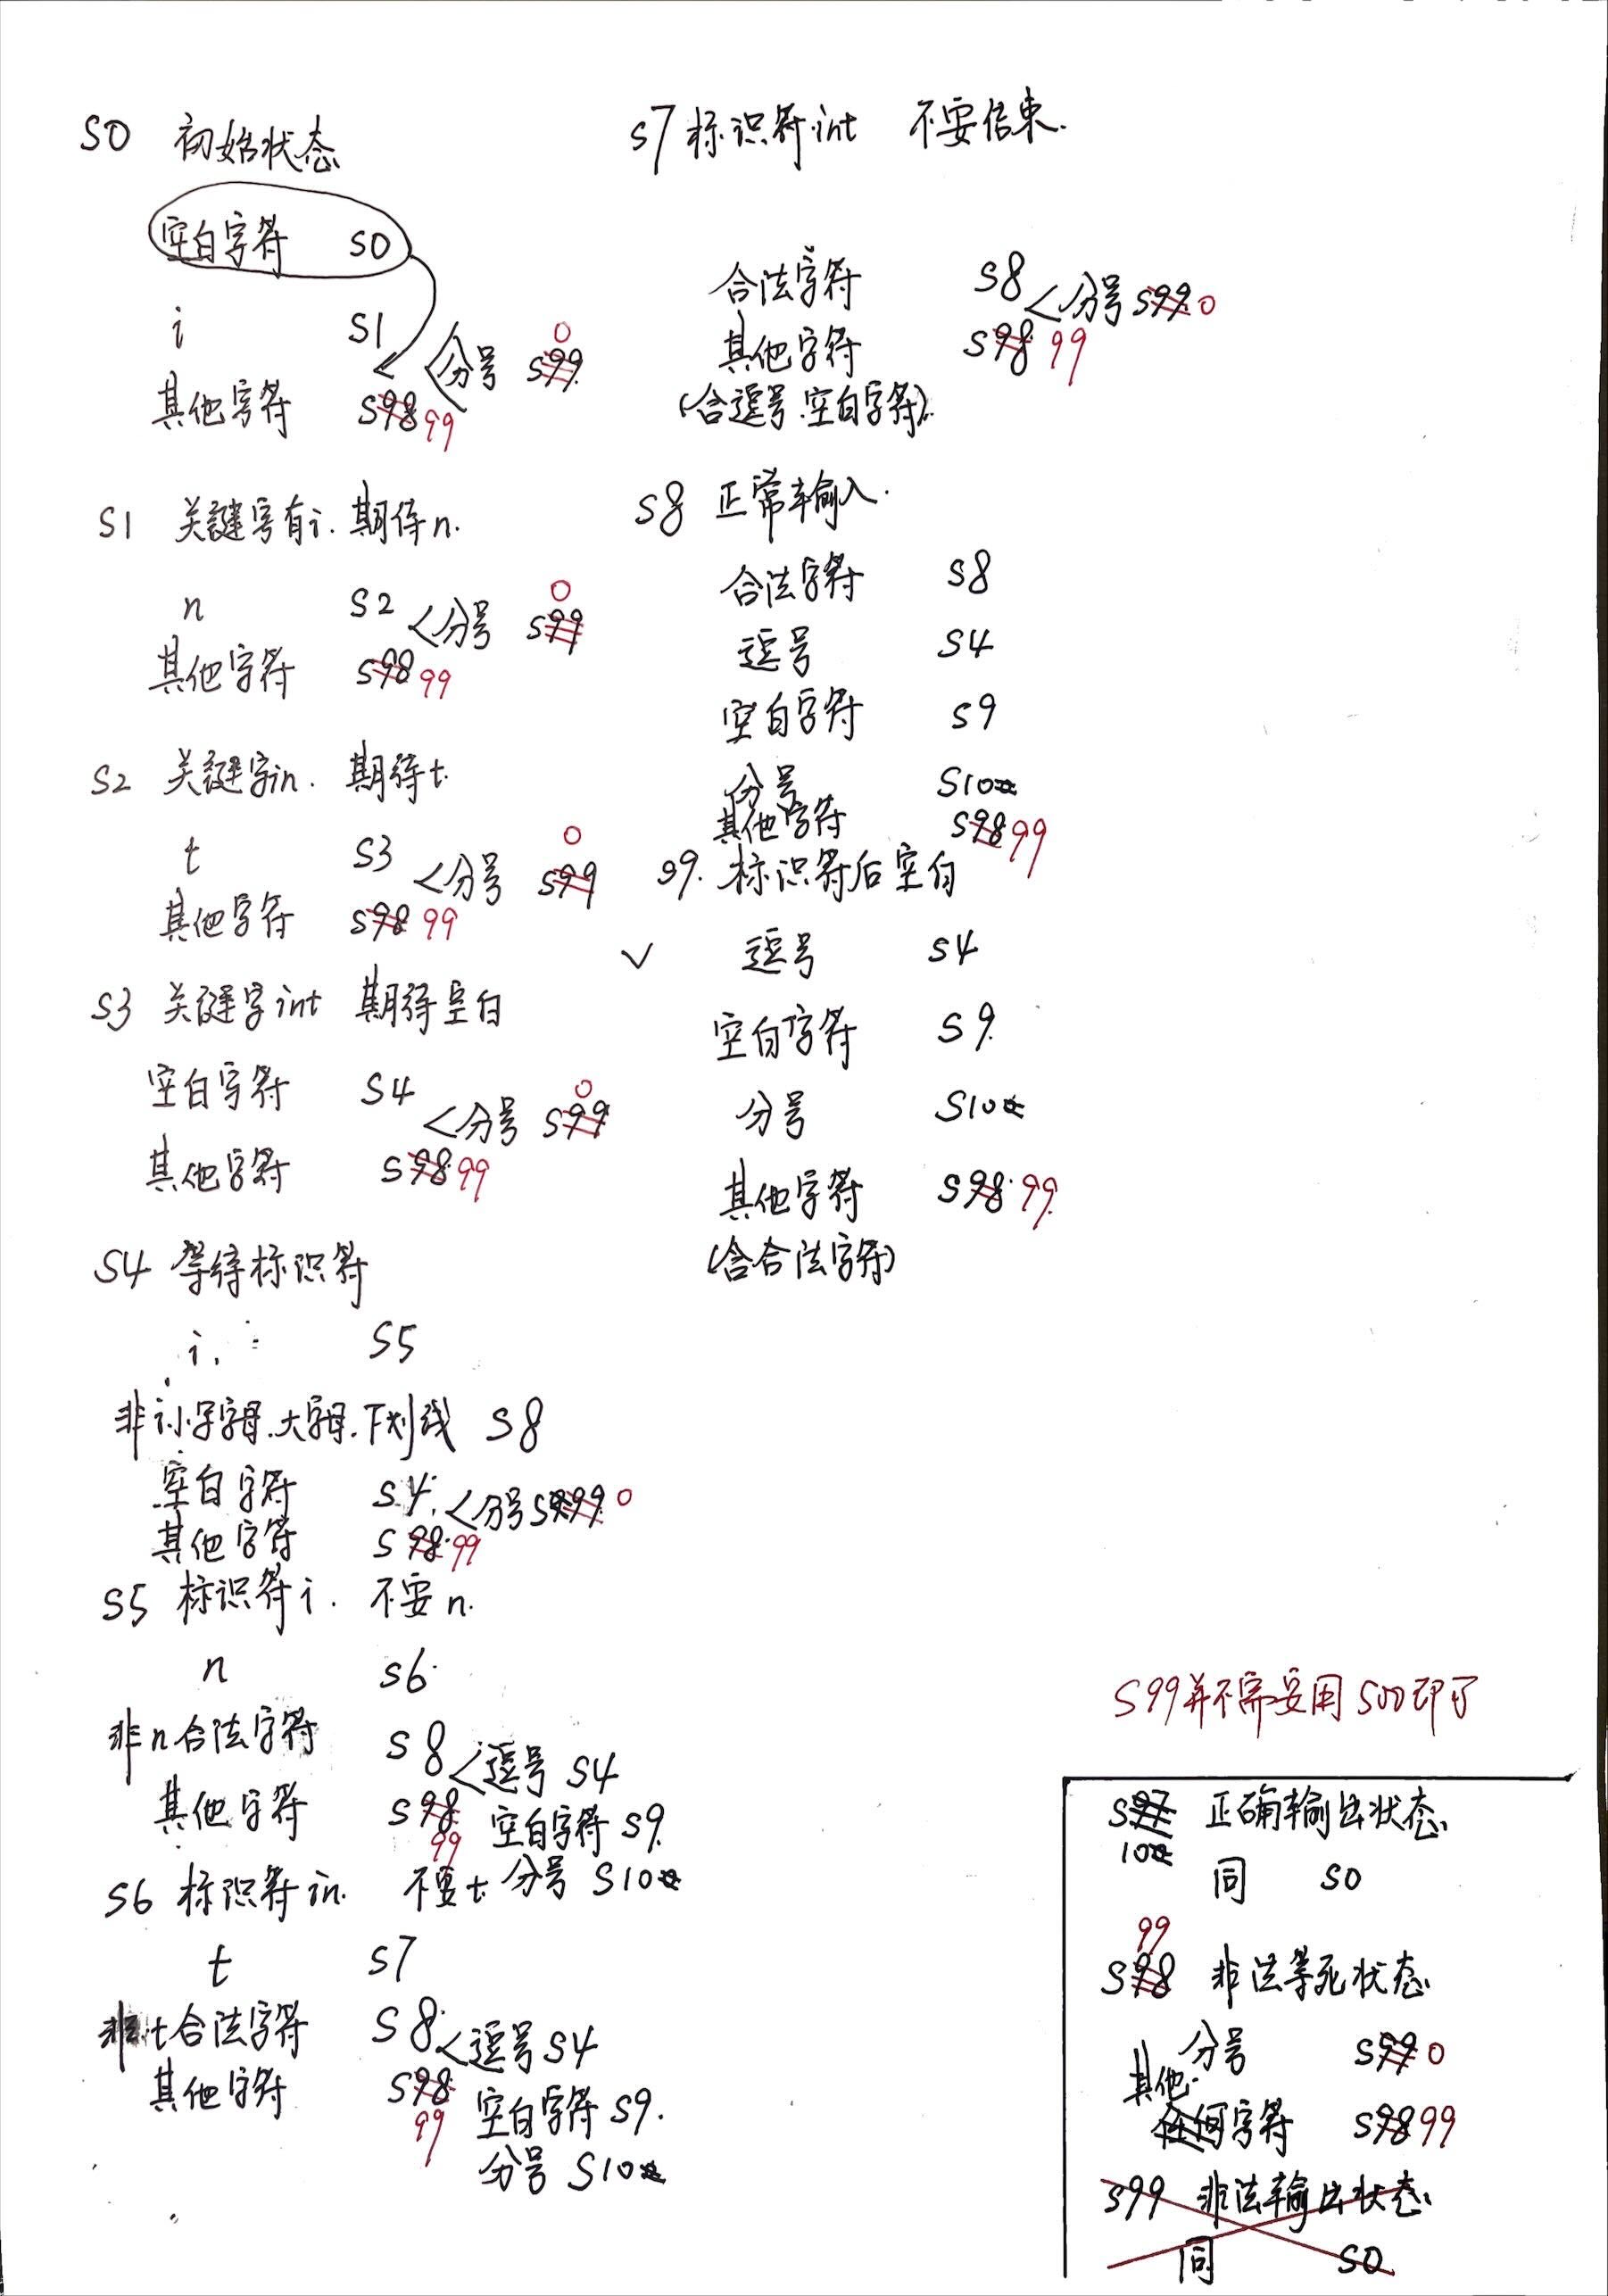 S0 初始状态
空白字符 S0
i S1
分号 S99 0
其他字符 S98 99
S1 关键字有i. 期待n.
n S2
分号 S99 0
其他字符 S98 99
S2 关键字in. 期待t.
t S3
分号 S99 0
其他字符 S98 99
S3 关键字int 期待空白
空白字符 S4
分号 S99 0
其他字符 S98 99
S4 等待标识符
i. S5
非i小写字母.大字母.下划线 S8
空白字符 S4
分号 S99 0
其他字符 S98 99
S5 标识符i. 不要n.
n S6
非n合法字符 S8
逗号 S4
其他字符 S98 99
空白字符 S9.
分号 S10
S6 标识符in. 不要t.
t S7
非t合法字符 S8
逗号 S4
其他字符 S98 99
空白字符 S9.
分号 S10
S7 标识符int 不要结束.
合法字符 S8
分号 S99 0
其他字符 S98 99
(含逗号.空白字符).
S8 正常输入.
合法字符 S8
逗号 S4
空白字符 S9
分号 S10
其他字符 S98 99
S9. 标识符后空白
逗号 S4
空白字符 S9.
分号 S10
其他字符 S98 99
(含合法字符)
S99并不需要用 S00即可
S97 正确输出状态
10
同 S0
99
S98 非法等死状态
分号 S99 0
其他
任何字符 S98 99
S99 非法输出状态
同 S0